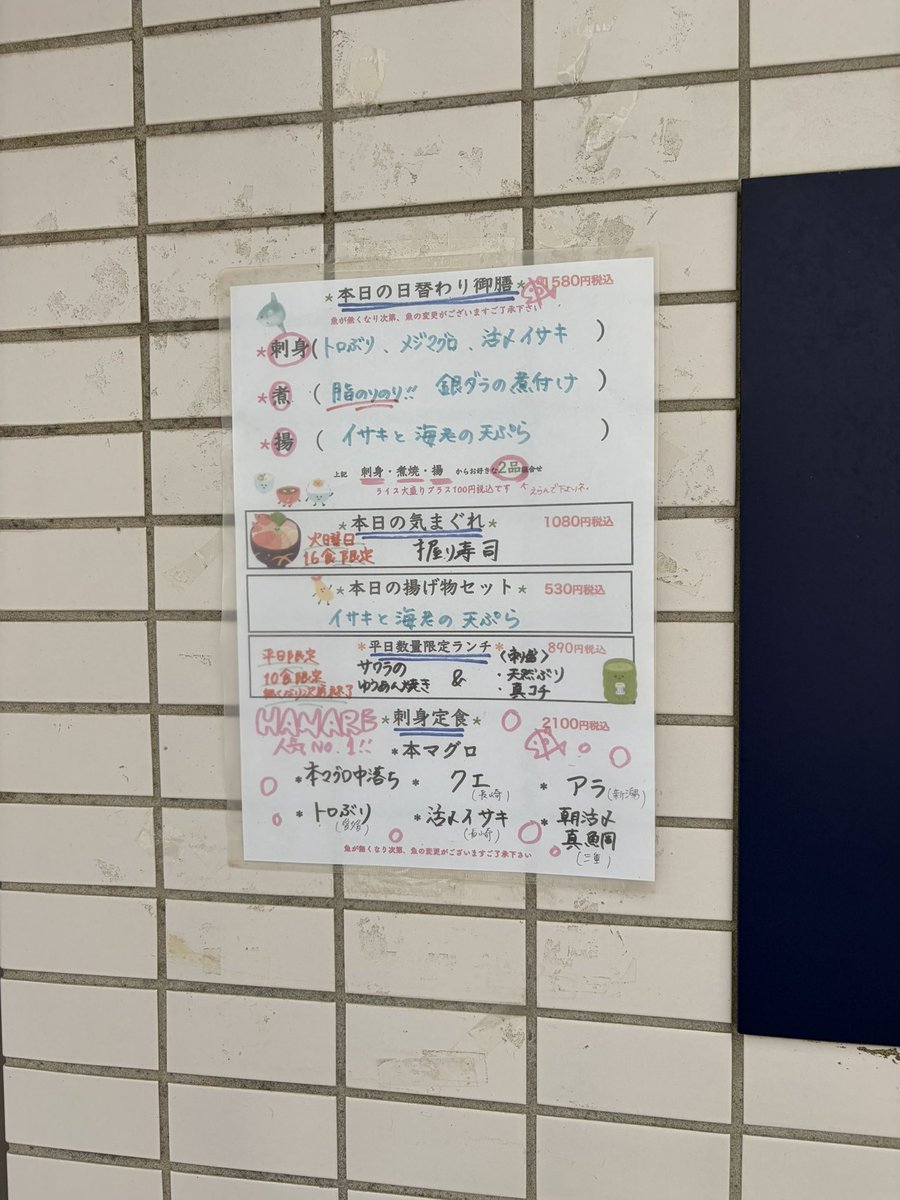 *本日の日替わり御膳* 1580円税込
魚が無くなり次第、魚の変更がございますご了承下さい
*刺身(トロぶり、メジマグロ、活〆イサキ)
*煮(脂のりのり!! 銀ダラの煮付け)
*揚(イサキと海老の天ぷら)
上記 刺身・煮焼・揚 からお好きな2品組合せ
ライス大盛りプラス100円税込です
えらんで下さいネ。
*本日の気まぐれ 1080円税込
火曜日
16食限定
握り寿司
*本日の揚げ物セット* 530円税込
イサキと海老の天ぷら
*平日数量限定ランチ* 890円税込
平日限定
10食限定
無くなり次第終了
サワラの
ゆうあん焼き
&
〈刺盛〉
・天然ぶり
・真コチ
HANARE *刺身定食* 2100円税込
人気NO.1!!
*本マグロ
*本マグロ中落ち *クエ(長崎) *アラ(新潟)
*トロぶり *活〆イサキ(長崎) *朝活〆
真鯛
(三重)
魚が無くなり次第、魚の変更がございますご了承下さい